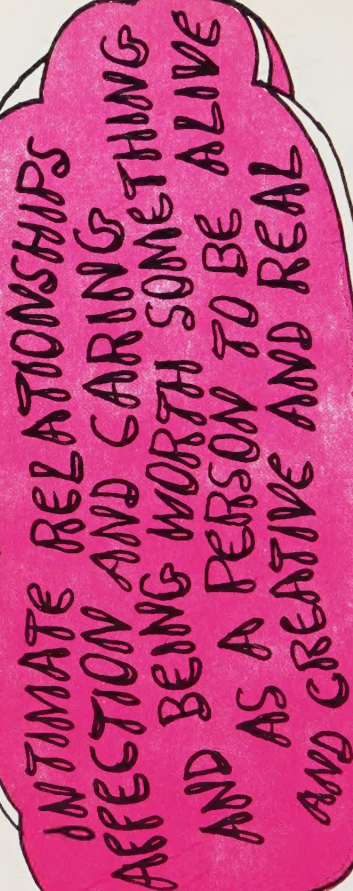 INTIMATE RELATIONSHIPS
AFFECTION AND CARING
AND BEING WORTH SOMETHING
AS A PERSON TO BE ALIVE
AND CREATIVE AND REAL